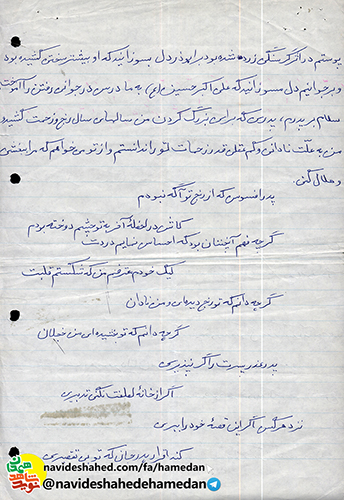 پوستم در اثر گرسنگی زرد شده بود برابوذر دل بسوزانید که او بیشتر سختی کشیده بود
و بر جوانیم دل مسوزانید که علی اکبر حسین (ع) به ما درس در جوانی رفتن را آموخت
سلام بر پدرم، پدری که برای بزرگ کردن من سالهای سال رنج و زحمت کشید
من به علت نادانی و کم عقلی قدر زحمات تو را ندانستم و از تو می‌خواهم که مرا ببخشی
و حلال کنی.
پدر افسوس که از رنج تو آگه نبودم
کاش در لحظهٔ آخر به تو چشم دوخته بودم
گرچه فهم آنچنان بود که احساس نمایم دردت
لیک خودم معترفم من که شکستم قلبت
گرچه دانم که تو رنج دیده‌ای و من نادان
گرچه دانم که تو بخشیده‌ای من خجلان
پدر عذر پسرت را گر نپذیری
اگر از خانهٔ لطفت نکنی تدبیری
نزد هر کس اگر این قصهٔ خود را ببری
کند اقرار پدر جان که تو بی تقصیری
navideshahed.com/fa/hamedan
@navideshahedehamedan
نوید شاهد
همدان